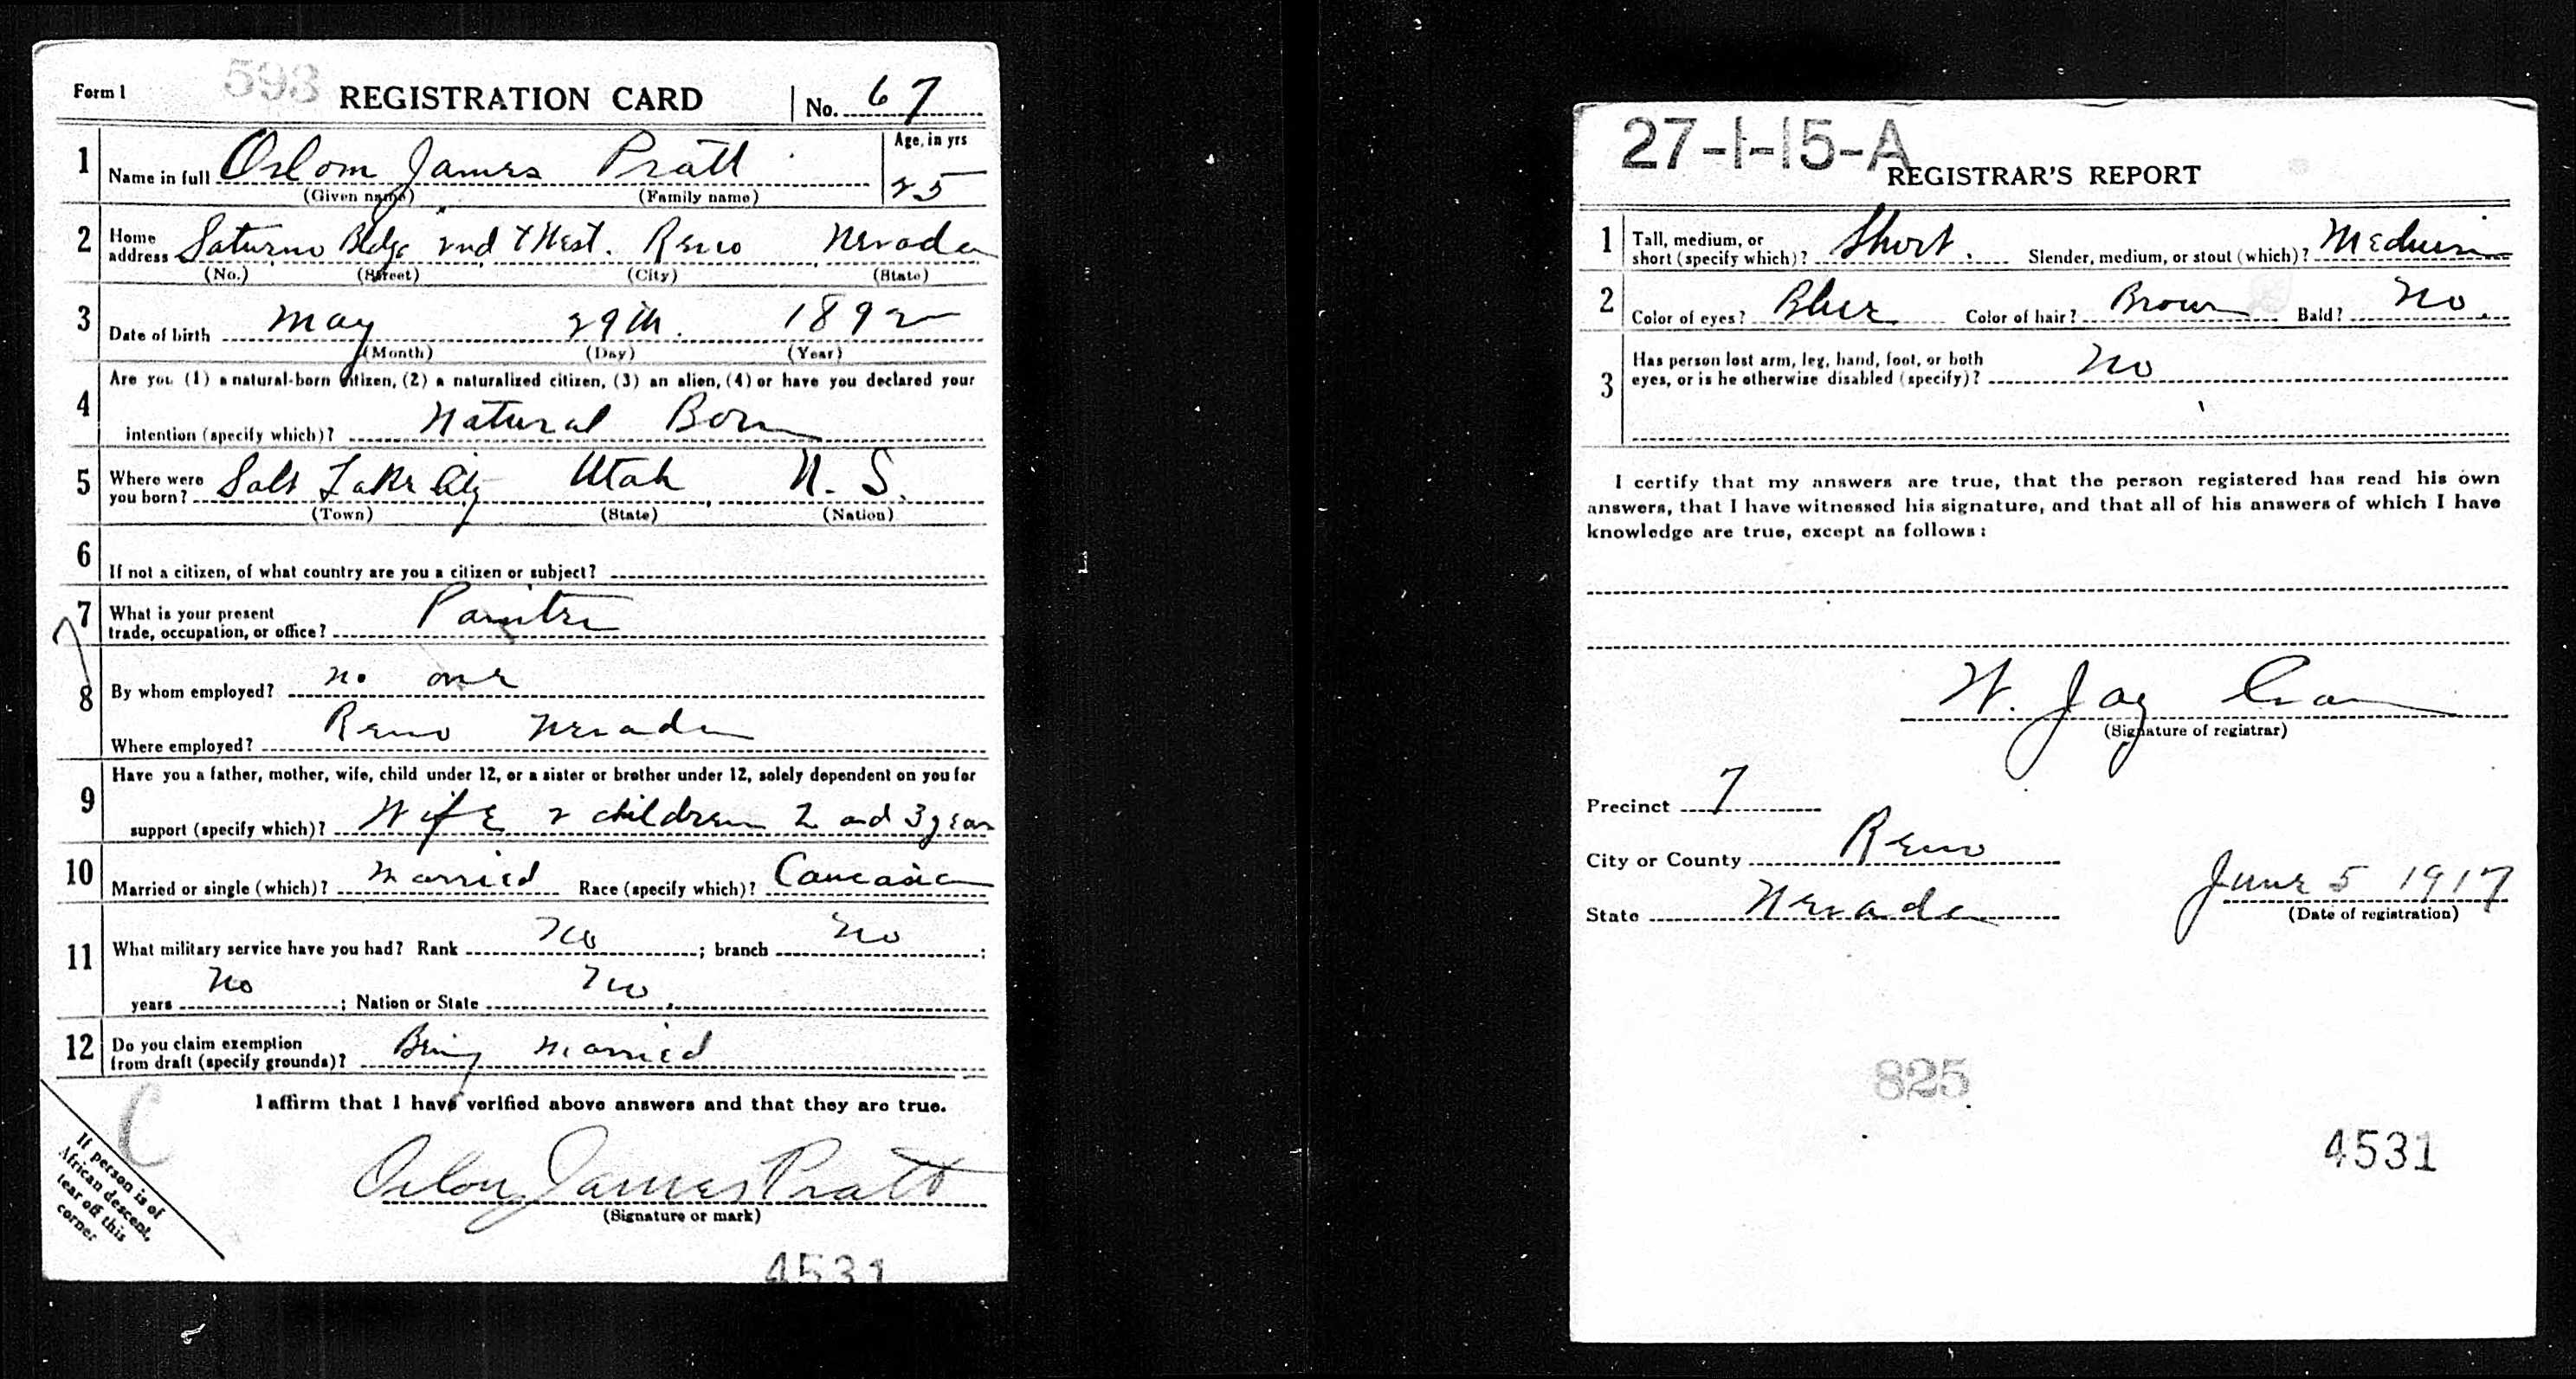 593
Form 1 REGISTRATION CARD No. 67
1 Name in full Orlom James Pratt Age, in yrs 25
(Given name) (Family name)
2 Home address Saturno Bldg 2nd & West. Reno Nevada
(No.) (Street) (City) (State)
3 Date of birth May 29th. 1892
(Month) (Day) (Year)
4 Are you (1) a natural-born citizen, (2) a naturalized citizen, (3) an alien, (4) or have you declared your
intention (specify which)? Natural Born
5 Where were you born? Salt Lake City Utah, U. S.
(Town) (State) (Nation)
6 If not a citizen, of what country are you a citizen or subject?
7 What is your present trade, occupation, or office? Painter
8 By whom employed? no one
Where employed? Reno Nevada
9 Have you a father, mother, wife, child under 12, or a sister or brother under 12, solely dependent on you for
support (specify which)? Wife 2 children 2 and 3 year
10 Married or single (which)? Married Race (specify which)? Caucasian
11 What military service have you had? Rank No; branch No;
years No; Nation or State No.
12 Do you claim exemption from draft (specify grounds)? Being Married
I affirm that I have verified above answers and that they are true.
C
If person is of
African descent,
tear off this
corner
Orlon James Pratt
(Signature or mark)
4531
27-1-15-A
REGISTRAR'S REPORT
1 Tall, medium, or short (specify which)? Short. Slender, medium, or stout (which)? Medium
2 Color of eyes? Blue Color of hair? Brown Bald? No.
3 Has person lost arm, leg, hand, foot, or both
eyes, or is he otherwise disabled (specify)? No
I certify that my answers are true, that the person registered has read his own
answers, that I have witnessed his signature, and that all of his answers of which I have
knowledge are true, except as follows:
W. Jay
(Signature of registrar)
Precinct 7
City or County Reno
State Nevada June 5 1917
(Date of registration)
825
4531